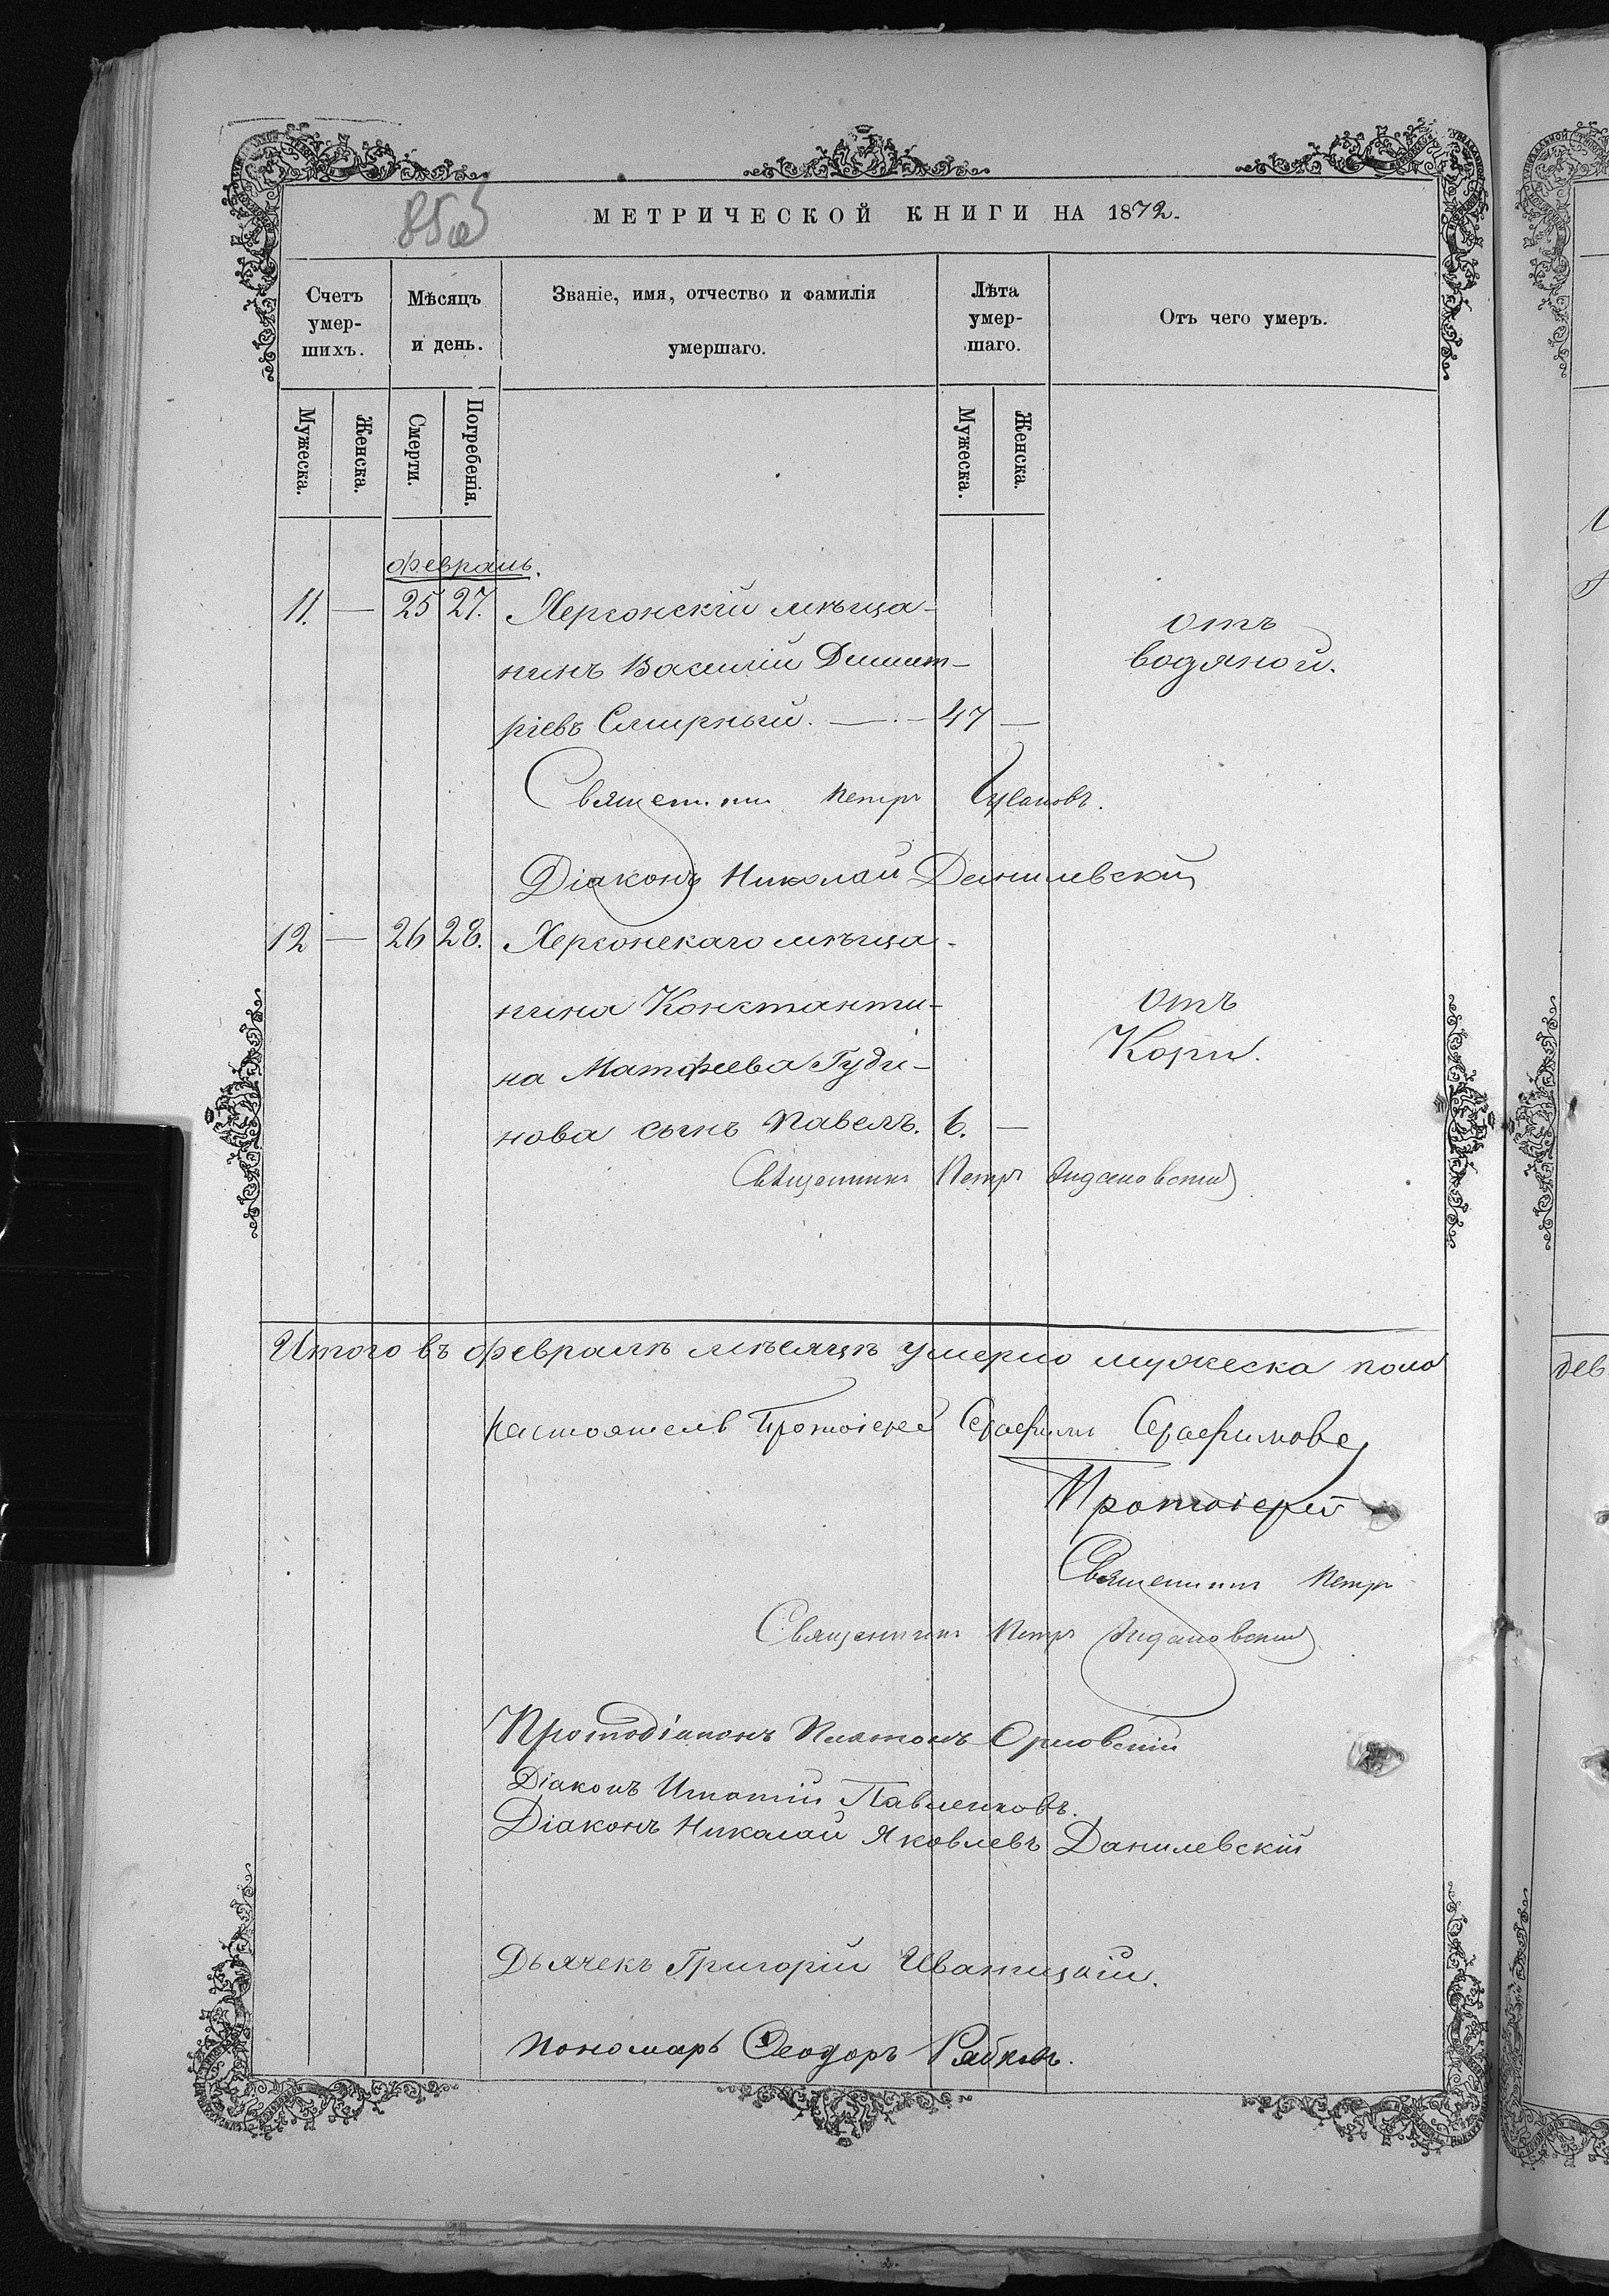 МЕТРИЧЕСКОЙ КНИГИ НА 1872.
Счетъ умер-шихъ.
Мѣсяцъ и день.
Званіе, имя, отчество и фамилія умершаго.
Лѣта умер-шаго.
Отъ чего умеръ.
Мужеска.
Женска.
Смерти.
Погребенія.
Мужеска.
Женска.
Февраль.
11. — 25 27. Херсонскій мѣща-
отъ
нинъ Василій Димит-
водяной.
ріевъ Смирный. — 47 —
Священникъ Петръ
Діаконъ Николай Данилевскій
12 — 26 28. Херсонскаго мѣща-
нина Константи-
отъ
на Матфеева Гуди-
Кори.
нова сынъ Павелъ. 6. —
Священникъ Петръ
Итого въ Февралѣ мѣсяцѣ умерло мужеска пола
Настоятель Протоіерей Серафимъ Серафимовъ
Протоіерей
Священникъ Петръ
Священникъ Петръ
Протодіаконъ Платонъ Орловскій
Діаконъ Игнатій Павленковъ.
Діаконъ Николай Яковлевъ Данилевскій
Дьячекъ Григорій Иваницкій.
Пономарь Ѳеодоръ Рябковъ.